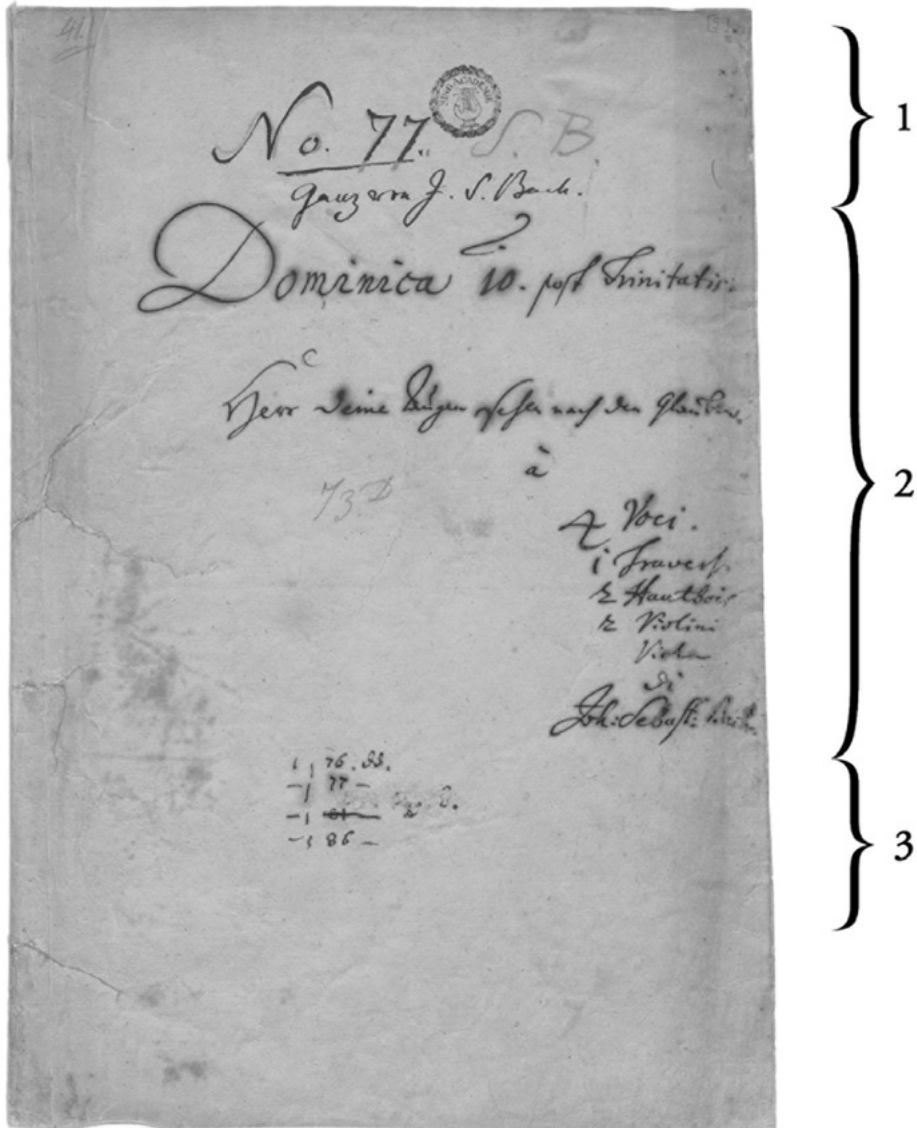 41.
SING-ACADEMIE
No. 77. S. B.
Ganz von J. S. Bach.
Dominica 10. post Trinitatis.
Herr deine Augen sehen nach den Glauben.
à
4 Voci.
1 Travers.
2 Hautbois
2 Violini
Viola
di
Joh: Sebast: Bach.
73
1
76.
77 –
81
86 –
2
3